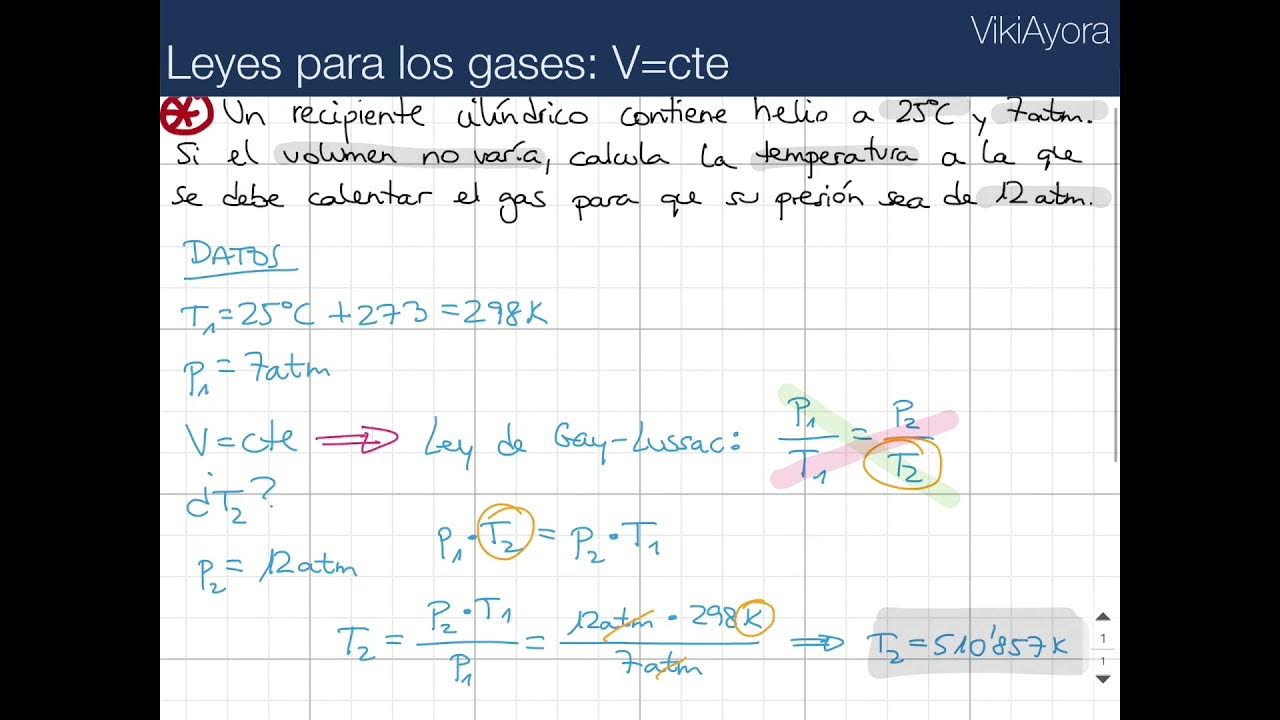 VikiAyora
Leyes para los gases: V=cte
* Un recipiente cilíndrico contiene helio a 25°C y 7atm.
Si el volumen no varía, calcula la temperatura a la que
se debe calentar el gas para que su presión sea de 12 atm.
DATOS
T₁ = 25°C + 273 = 298K
P₁ = 7atm
V = cte ⇒ Ley de Gay-Lussac: P₁/T₁ = P₂/T₂
¿T₂?
P₁ · T₂ = P₂ · T₁
P₂ = 12atm
T₂ = P₂ · T₁ / P₁ = 12atm · 298K / 7atm ⇒ T₂ = 510'857K
1
1